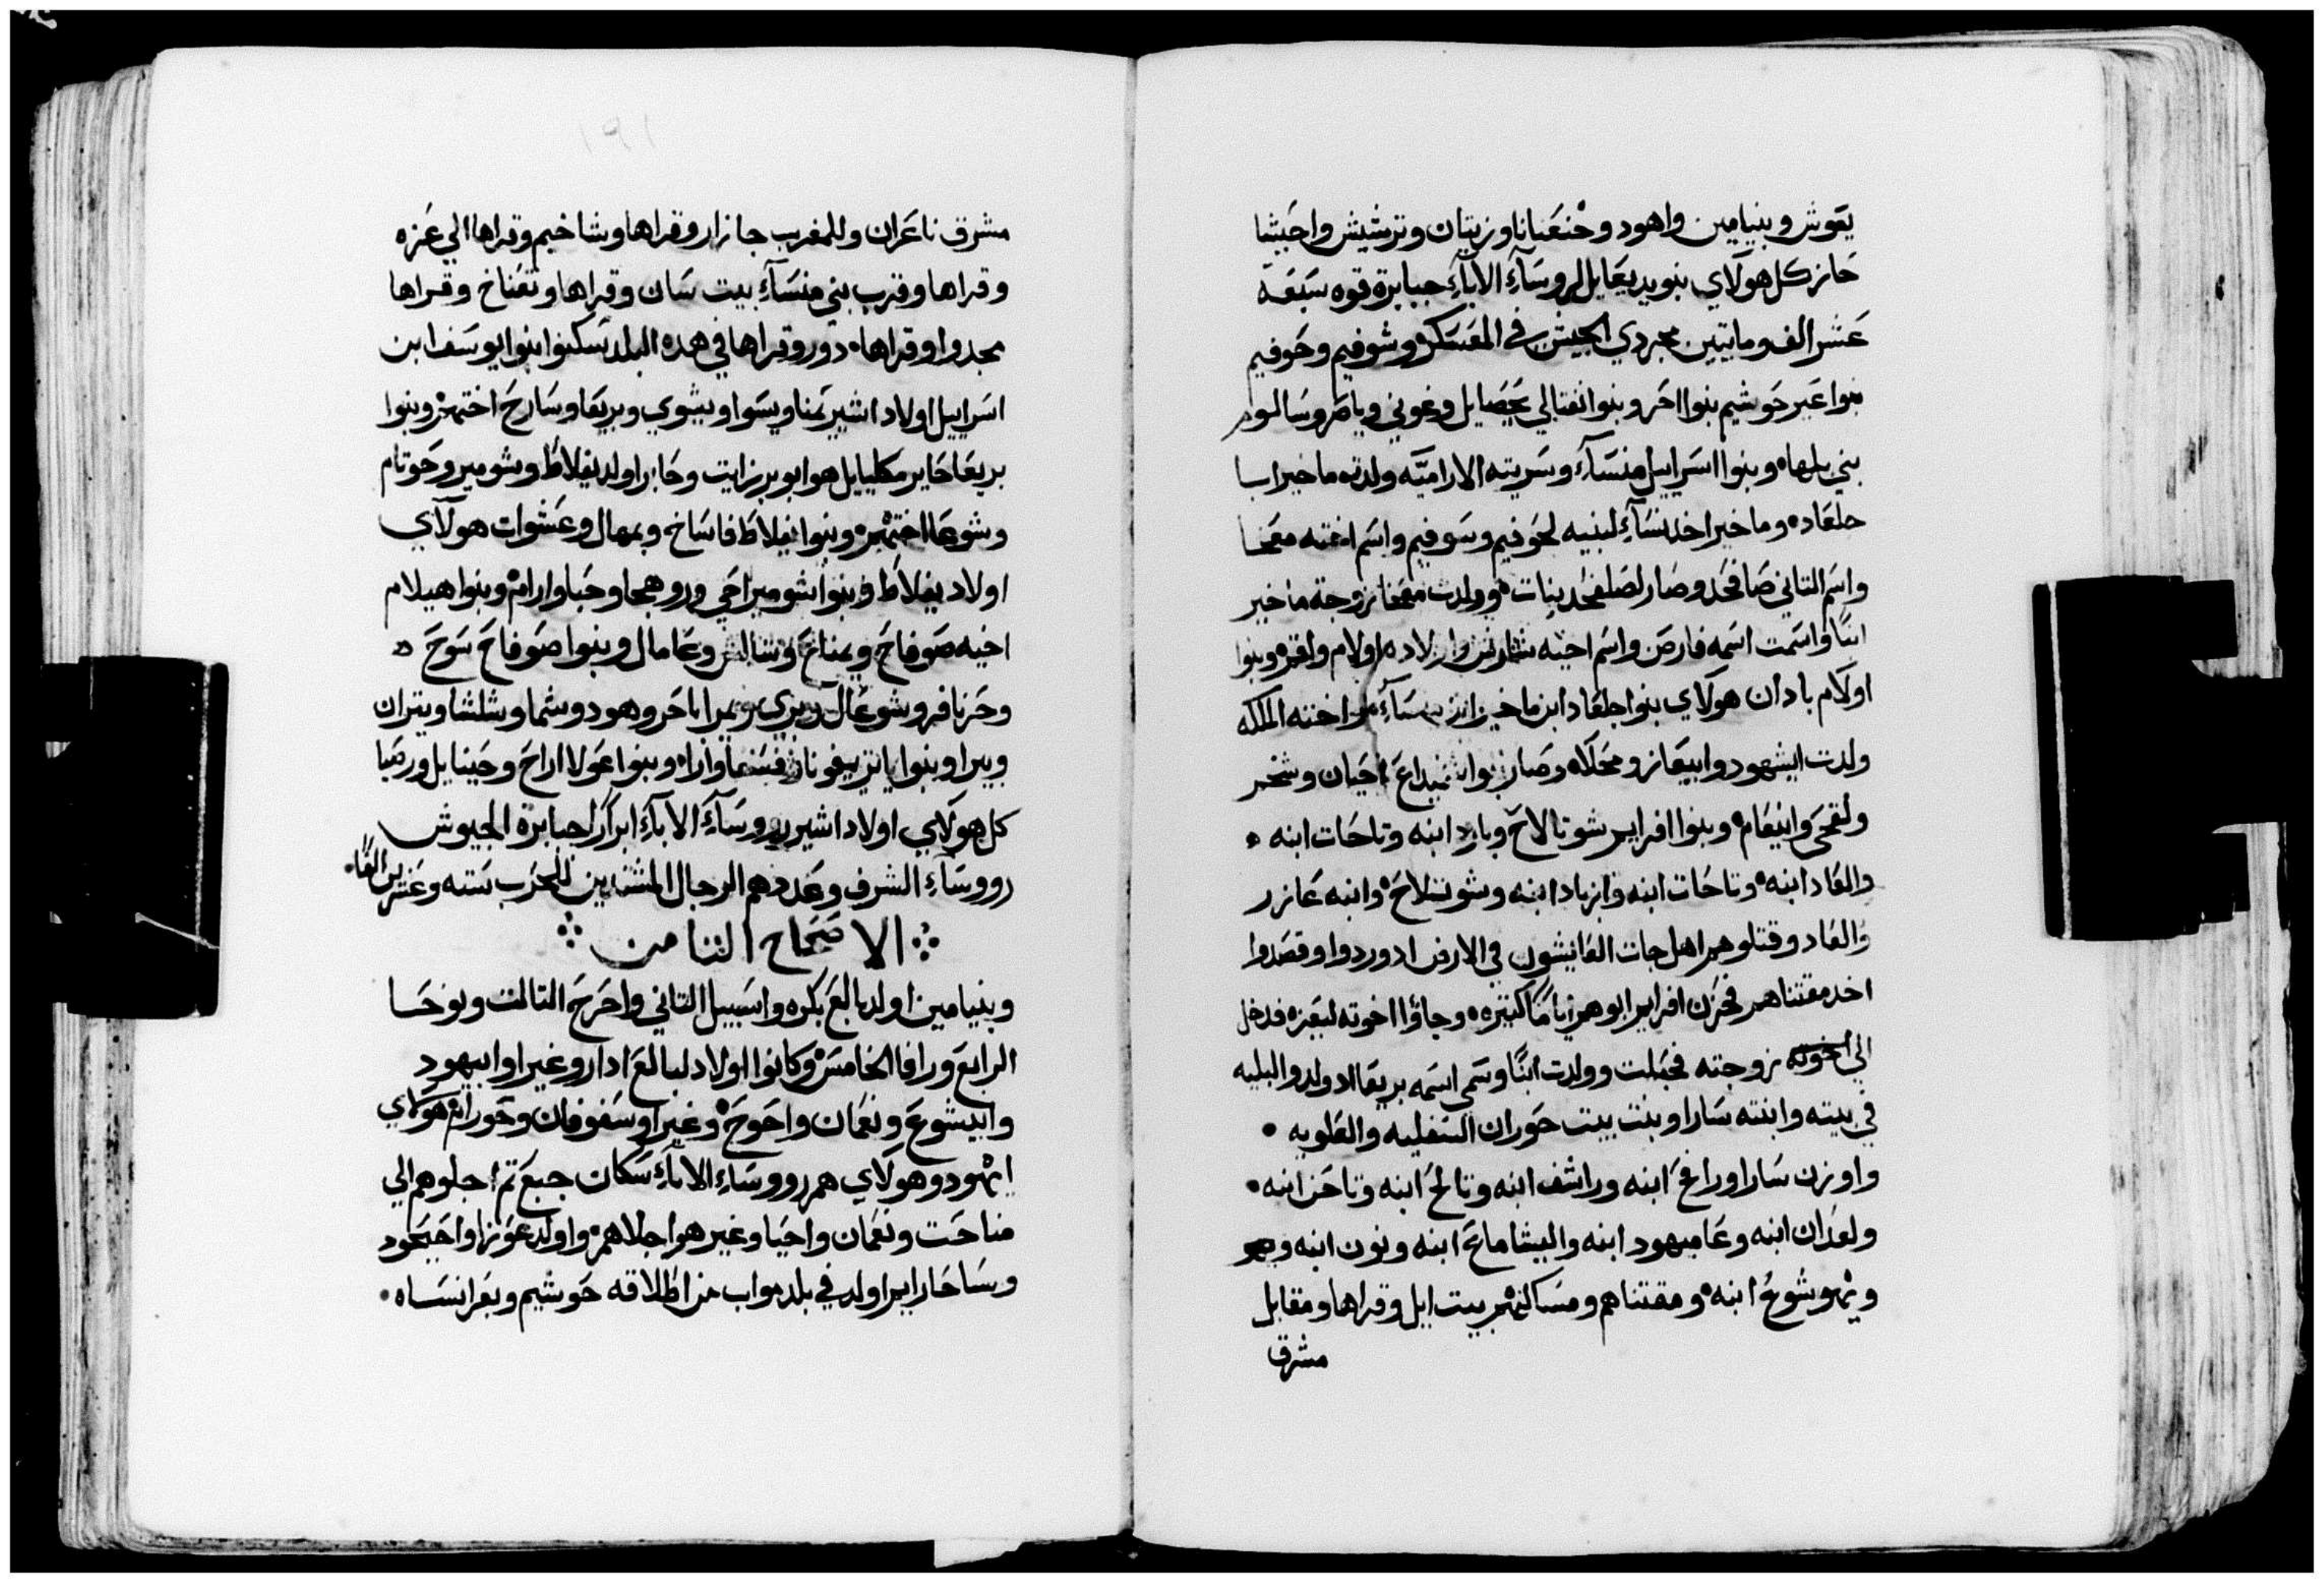 يعوش وبنيامين واهود وخنعنانا وزيتان وترشيش واحبشا
حاز كل هولاي بنو يديعايل لروسآءِ الابآءِ جبابرة قوه سبعة
عشر الف ومايتين مجردي الجيش في المعسكر وشوفيم وحوفيم
بنوا عير حوشيم بنوا احر وبنوا نفتالي يحصايل وغوني وياصر وسالوم
بني بلها وبنوا اسراييل منسآءَ وسريته الاراميّه ولدت ماخيرابا
جلعاد وماخير اخد نسآءِ لبنيه لحوفيم وسوفيم واسم اخته معخا
واسم التاني صافحد وصار لصلفحد بنات وولدت معخا زوجة ماخير
ابنًا واسمت اسمه فارص واسم اخيه شارش واولاده اولام واقر وبنوا
اولام بادان هولاي بنوا جلعاد ابن ماخير ابن منسآءَ واخته الملكه
ولدت ايشهود وابيعازر ومحلاه وصار بنوا شميداع احيان وشخمر
ولقحي وانيعام وبنوا افرايم شوتالاح وبارد ابنه وتاحات ابنه
والعاد ابنه وتاحات ابنه وازباد ابنه وشوتلاح وابنه عازر
والعاد وقتلوهم اهل جات العايشون في الارض ادوردوا وقصدوا
اخد مقتناهم فحزن افرايم ابوهم اياما كثيره وجاؤا اخوته ليعزه فدخل
الي اخوته زوجته فحبلت وولدت ابنًا وسمي اسمه بريعا اد ولد والبليه
في بيته وابنته سارا وبنت بيت حوران السفليه والعلويه
واوزن سارا ورافح ابنه وراشف ابنه وتالح ابنه وتاحن ابنه
ولعدان ابنه وعاميهود ابنه واليشاماع ابنه ونون ابنه
ويهوشوع ابنه ومقتناهم ومساكنهم بيت ايل وقراها ومقابل
مشرق
مشرق ناعران وللمغرب جازار وقراها وشاخيم وقراها الي عزه
وقراها وقرب بني منسآءِ بيت سان وقراها وتعناخ وقراها
مجدوا وقراها دور وقراها في هده البلد سكنوا بنوا يوسف ابن
اسراييل اولاد اشير يمنا ويسوا ويشوي وبريعا وسارح اختهم وبنوا
بريعا حابر مكليايل هو ابو برزايت وحابر اولد يفلاط وشومير وحوتام
وشوعا اختهم وبنوا يفلاط فاساخ وبمهال وعشوات هولآي
اولاد يفلاط وبنوا شومير احي وروهجا وحبا وارام وبنوا هيلام
اخيه صوفاح ويمناع وشالش وعامال وبنوا صوفاح سوح
وحرنافر وشوعال وبري ويمرا باصر وهود وشما وشلشا ويتران
وبيرا وبنوا ياتر يفونا وفسفا وارا وبنوا عولا اراح وحينايل ورصيا
كل هولاي اولاد اشير روسآءِ الابآءِ ابرارا جبابرة الجيوش
رووسآءِ الشرف وعددهم الرجال المشتدين للحرب سته وعشرين الفًا
الاصحاح الثامن
وبنيامين اولد بالع بكره واسبيل التاني واحرح التالت ونوحا
الرابع ورافا الخامس وكانوا اولاد لبالع ادار وغيرا وابيهود
وابيشوع ونعمان واحوح وغيرا وسفوفان وحورام هولاي
ايهود وهولاي هم رووسآءِ الابآءِ سكان جبع تم اجلوهم الي
مناحت ونعمان واحيا وغير هوا جلاهم واولد عوزا واحيحود
وساحاراير اولد في بلد مواب من اطلاقه حوشيم وبعرا نساه